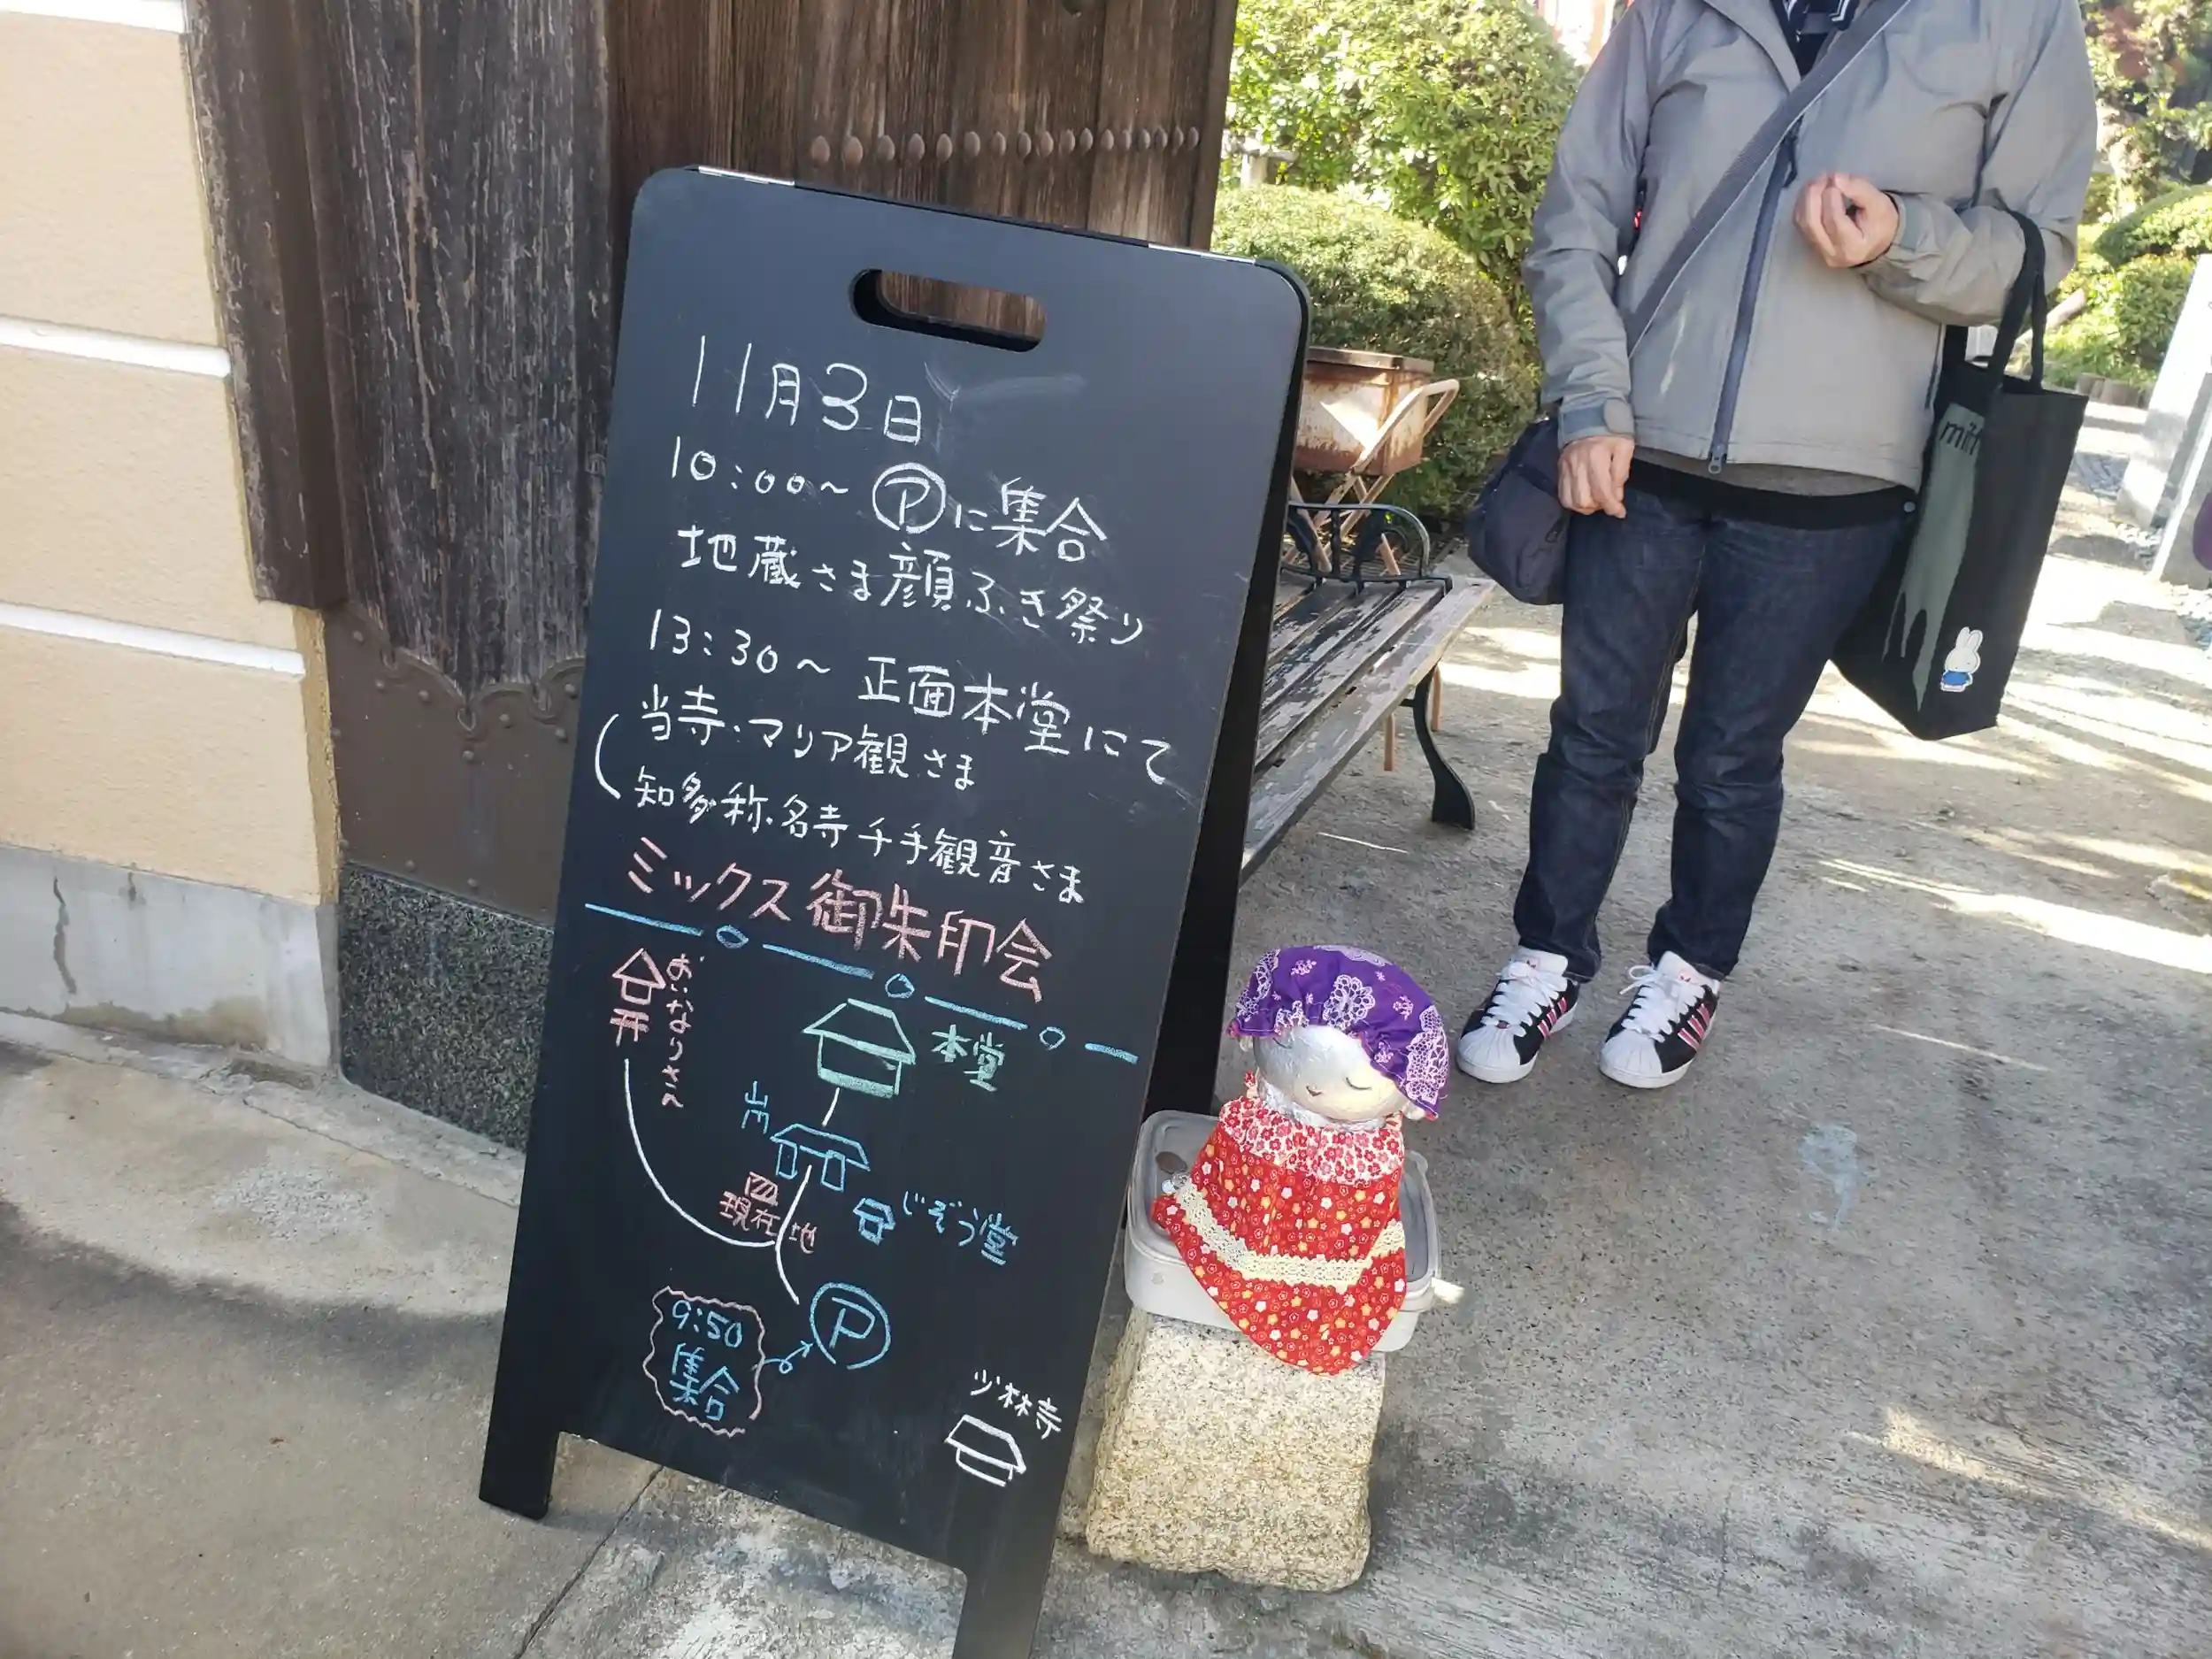 11月3日
10:00〜 Ⓟに集合
地蔵さま顔ふき祭り
13:30〜 正面本堂にて
当寺・マリア観さま
知多称名寺千手観音さま
ミックス御朱印会
おいなりさん
本堂
山門
現在地
じぞう堂
9:50
集合
Ⓟ
少林寺
miff